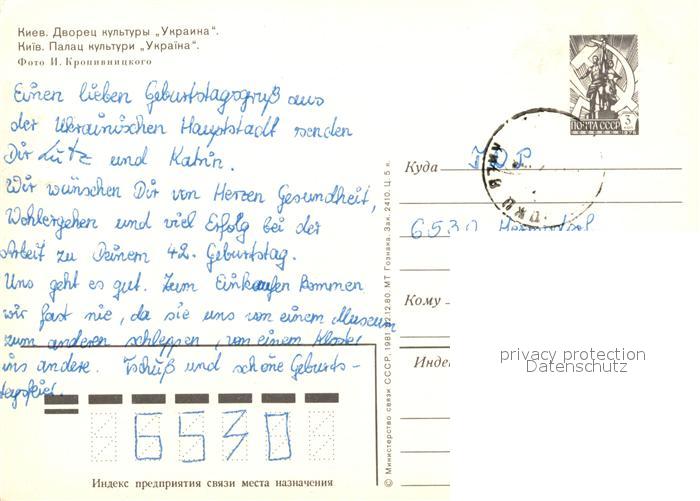 Киев. Дворец культуры „Украина“.
Київ. Палац культури „Україна“.
Фото И. Кропивницкого
Einen lieben Geburtstagsgruß aus
der Ukrainischen Hauptstadt senden
Dir Lutz und Katrin.
Wir wünschen Dir von Herzen Gesundheit,
Wohlergehen und viel Erfolg bei der
Arbeit zu Deinem 42. Geburtstag.
Uns geht es gut. Zum Einkaufen kommen
wir fast nie, da sie uns von einem Museum
zum anderen schleppen, von einem Kloster
ins andere. Tschüß und schöne Geburts-
tagsfeier.
ПОЧТА СССР 3
1976
Куда
6530
Кому
Инде
privacy protection
Datenschutz
6530
Индекс предприятия связи места назначения
© Министерство связи СССР. 1981 12.12.80. МТ Гознака. Зак. 2410. Ц. 5 к.